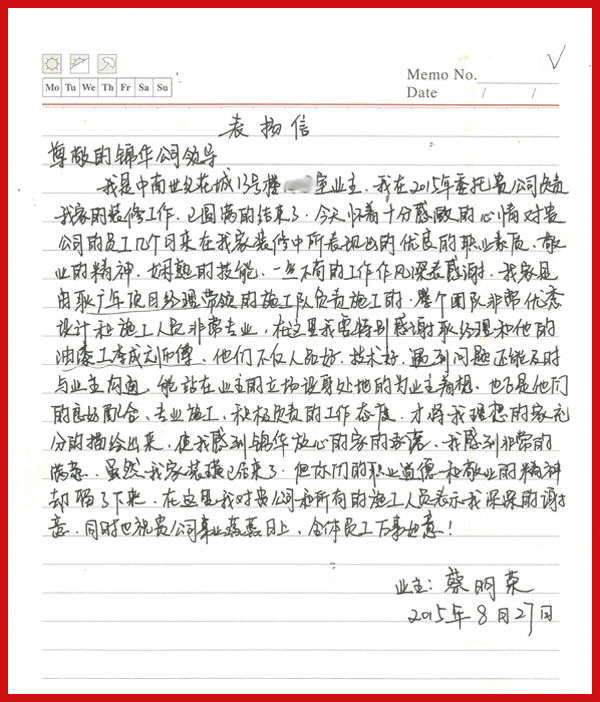 Memo No.
Mo Tu We Th Fr Sa Su
Date / /
表扬信
尊敬的锦华公司领导
我是中南世纪花城13号楼 室业主,我在2015年委托贵公司负责
我家的装修工作,已圆满的结束了,今天怀着十分感激的心情对贵
公司的员工几个月来在我家装修中所表现出的优良的职业素质、敬
业的精神、娴熟的技能、一丝不苟的工作作风深表感谢。我家是
由耿广年项目经理带领的施工队负责施工的,整个团队非常优秀
设计和施工人员非常专业,在这里我要特别感谢耿经理和他的
油漆工 师傅、他们不仅人品好、技术好,遇到问题还能及时
与业主沟通,能站在业主的立场设身处地的为业主着想,也正是他们
的良好配合、专业施工、积极负责的工作态度,才将我理想的家充
分的描绘出来,使我感到锦华放心的家的承诺,我感到非常的
满意。虽然我家装璜已结束了,但你们的职业道德和敬业的精神
却留了下来,在这里我对贵公司和所有的施工人员表示我深深的谢
意,同时也祝贵公司事业蒸蒸日上,全体员工万事如意!
业主:蔡明荣
2015年8月27日